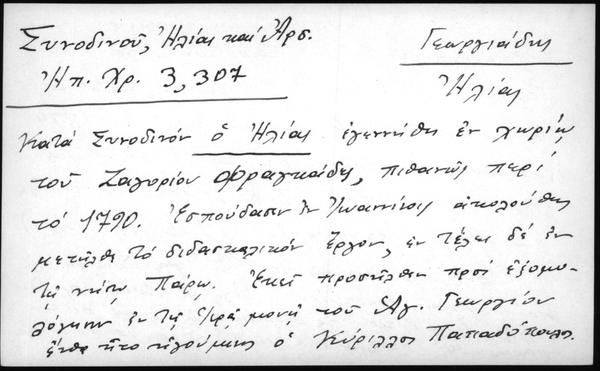 Συνοδινοῦ, Ἠλίας καὶ Ἀρσ.
Ἠπ. Χρ. 3, 307
Γεωργιάδης
Ἠλίας
Κατὰ Συνοδινὸν ὁ Ἠλίας ἐγεννήθη ἐν χωρίῳ
τοῦ Ζαγορίου Φραγκάδες, πιθανῶς περὶ
τὸ 1790. Ἐσπούδασεν ἐν Ἰωαννίνοις ἀκολούθως
μετῆλθε τὸ διδασκαλικὸν ἔργον, ἐν τέλει δὲ ἐν
τῇ νήσῳ Πάρῳ. Ἐκεῖ προσῆλθεν πρὸς ἐξομο-
λόγησιν ἐν τῇ ἱερᾷ μονῇ τοῦ Ἁγ. Γεωργίου
ἔνθα ἦτο ἡγούμενος ὁ Κύριλλος Παπαδόπουλος.